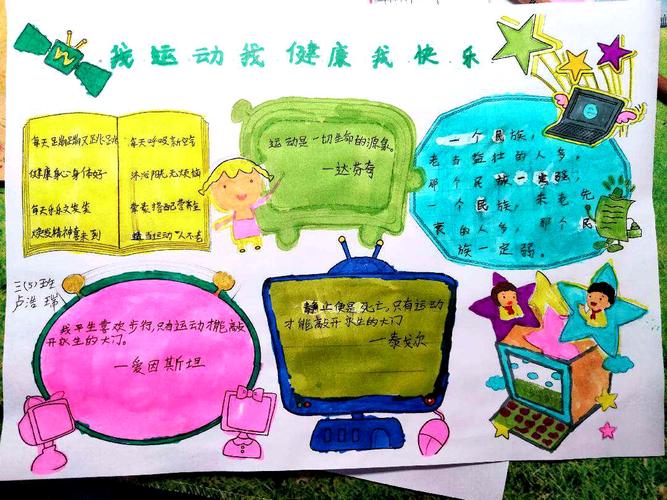 我运动我健康我快乐
每天蹦蹦又跳跳
健康身心身体好
每天乐乐又笑笑
焕发精神喜来到
每天呼吸新空气
沐浴阳光无烦恼
营养
适当运动人不老
运动是一切生命的源泉。
—达芬奇
一个民族，
老当益壮的人多，
那个民族一定强；
一个民族，未老先
衰的人多，那个民
族一定弱。
三(5)班
卢浩瑞
我平生喜欢步行,只有运动才能敲
开永生的大门。
—爱因斯坦
静止便是死亡,只有运动
才能敲开永生的大门
—泰戈尔